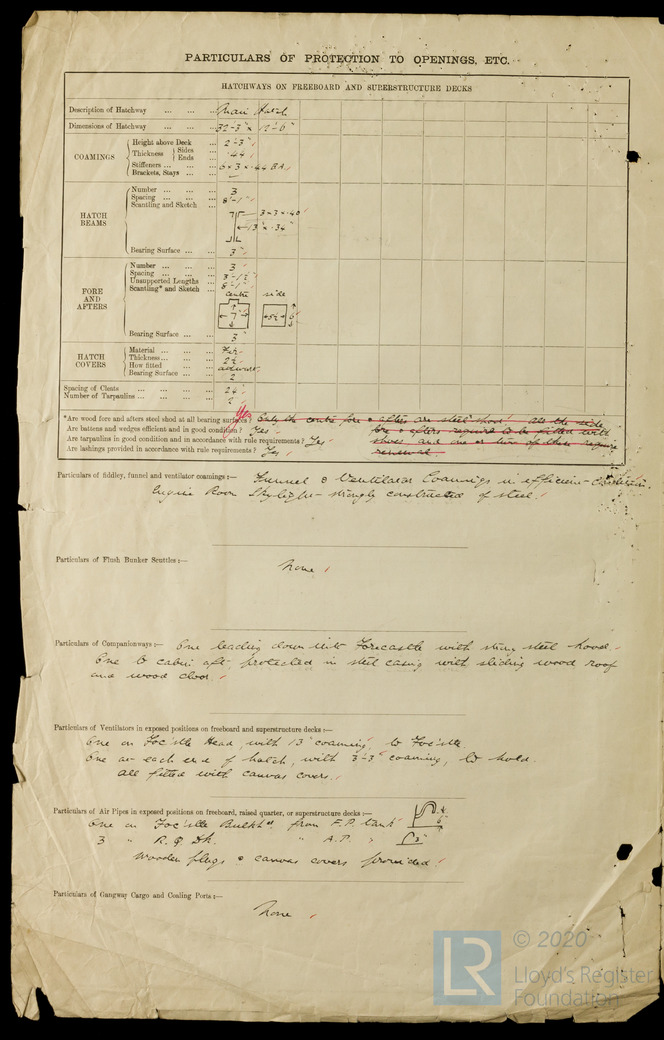 PARTICULARS OF PROTECTION TO OPENINGS, ETC.
HATCHWAYS ON FREEBOARD AND SUPERSTRUCTURE DECKS
Description of Hatchway ... ... ... Main Hatch
Dimensions of Hatchway ... ... ... 32-3" x 12-6"
COAMINGS
Height above Deck ... 2-3"
Thickness Sides ... .44
Ends ...
Stiffeners ... ... ... 6 x 3 x .44 BA
Brackets, Stays ... ...
HATCH BEAMS
Number ... ... ... 3
Spacing ... ... ... 8'-1"
Scantling and Sketch ...
3 x 3 x .40
13" x .34"
Bearing Surface ... ... 3"
FORE AND AFTERS
Number ... ... ... 3
Spacing ... ... ... 3'-1½"
Unsupported Lengths ... 8'-1"
Scantling* and Sketch ... centre side
7" 5½ 6"
Bearing Surface ... ... 3"
HATCH COVERS
Material ... ... ... Fir
Thickness ... ... ... 2½
How fitted ... ...
Bearing Surface ... ... 2
Spacing of Cleats ... ... ... ... 24"
Number of Tarpaulins ... ... ... ... 2
*Are wood fore and afters steel shod at all bearing surfaces? Yes Only the centre fore & after are steel shod. All the side
Are battens and wedges efficient and in good condition? Yes fore & afters require to be fitted with
Are tarpaulins in good condition and in accordance with rule requirements? Yes shoes and one or two of them require
Are lashings provided in accordance with rule requirements? Yes renewal
Particulars of fiddley, funnel and ventilator coamings:— Funnel & Ventilator Coamings in efficient condition.
Engine Room Skylight – strongly constructed of steel.
Particulars of Flush Bunker Scuttles:—
None
Particulars of Companionways:— One leading down into Forecastle with strong steel hood.
One to cabin aft, protected in steel casing with sliding wood roof
and wood door.
Particulars of Ventilators in exposed positions on freeboard and superstructure decks:—
One on Foc'stle Head, with 13" coaming, to Foc'stle.
One at each end of hatch, with 3'-3" coaming, to hold.
All fitted with canvas covers.
Particulars of Air Pipes in exposed positions on freeboard, raised quarter, or superstructure decks:—
One on Foc'stle Bulkhd from F.P. tank 6"
3 " R.Q. Dk. " A.P. " 3"
Wooden plugs & canvas covers provided.
Particulars of Gangway Cargo and Coaling Ports:—
None
LR
© 2020
Lloyd's Register
Foundation